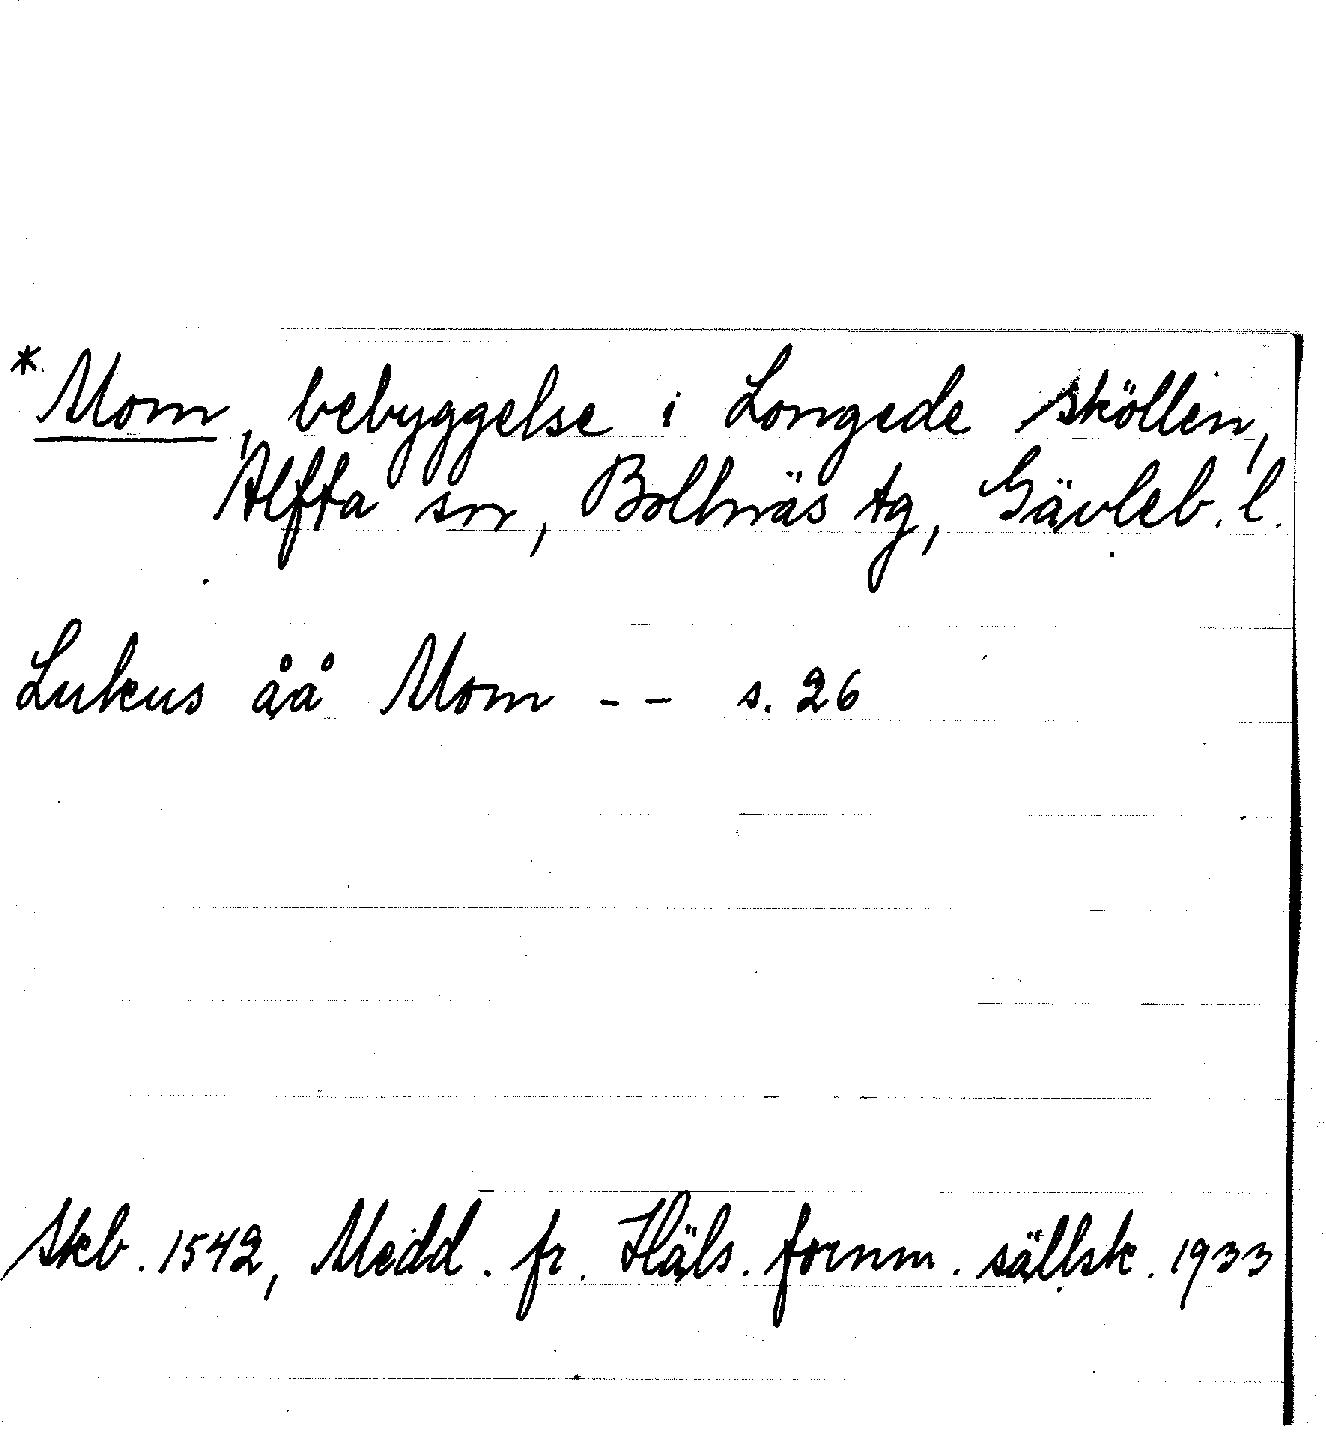 *Mom, bebyggelse i Longede sköllen,
Alfta sn, Bollnäs tg, Gävleb. l.
Lukus åå Mom -- s. 26
Skb. 1542, Medd. fr. Häls. fornm. sällsk. 1933